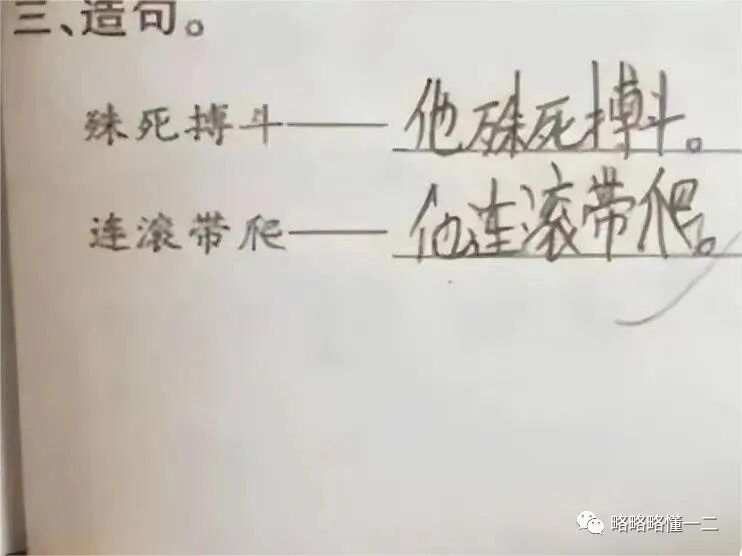 三、造句。
殊死搏斗——他殊死搏斗。
连滚带爬——他连滚带爬。
略略略懂一二